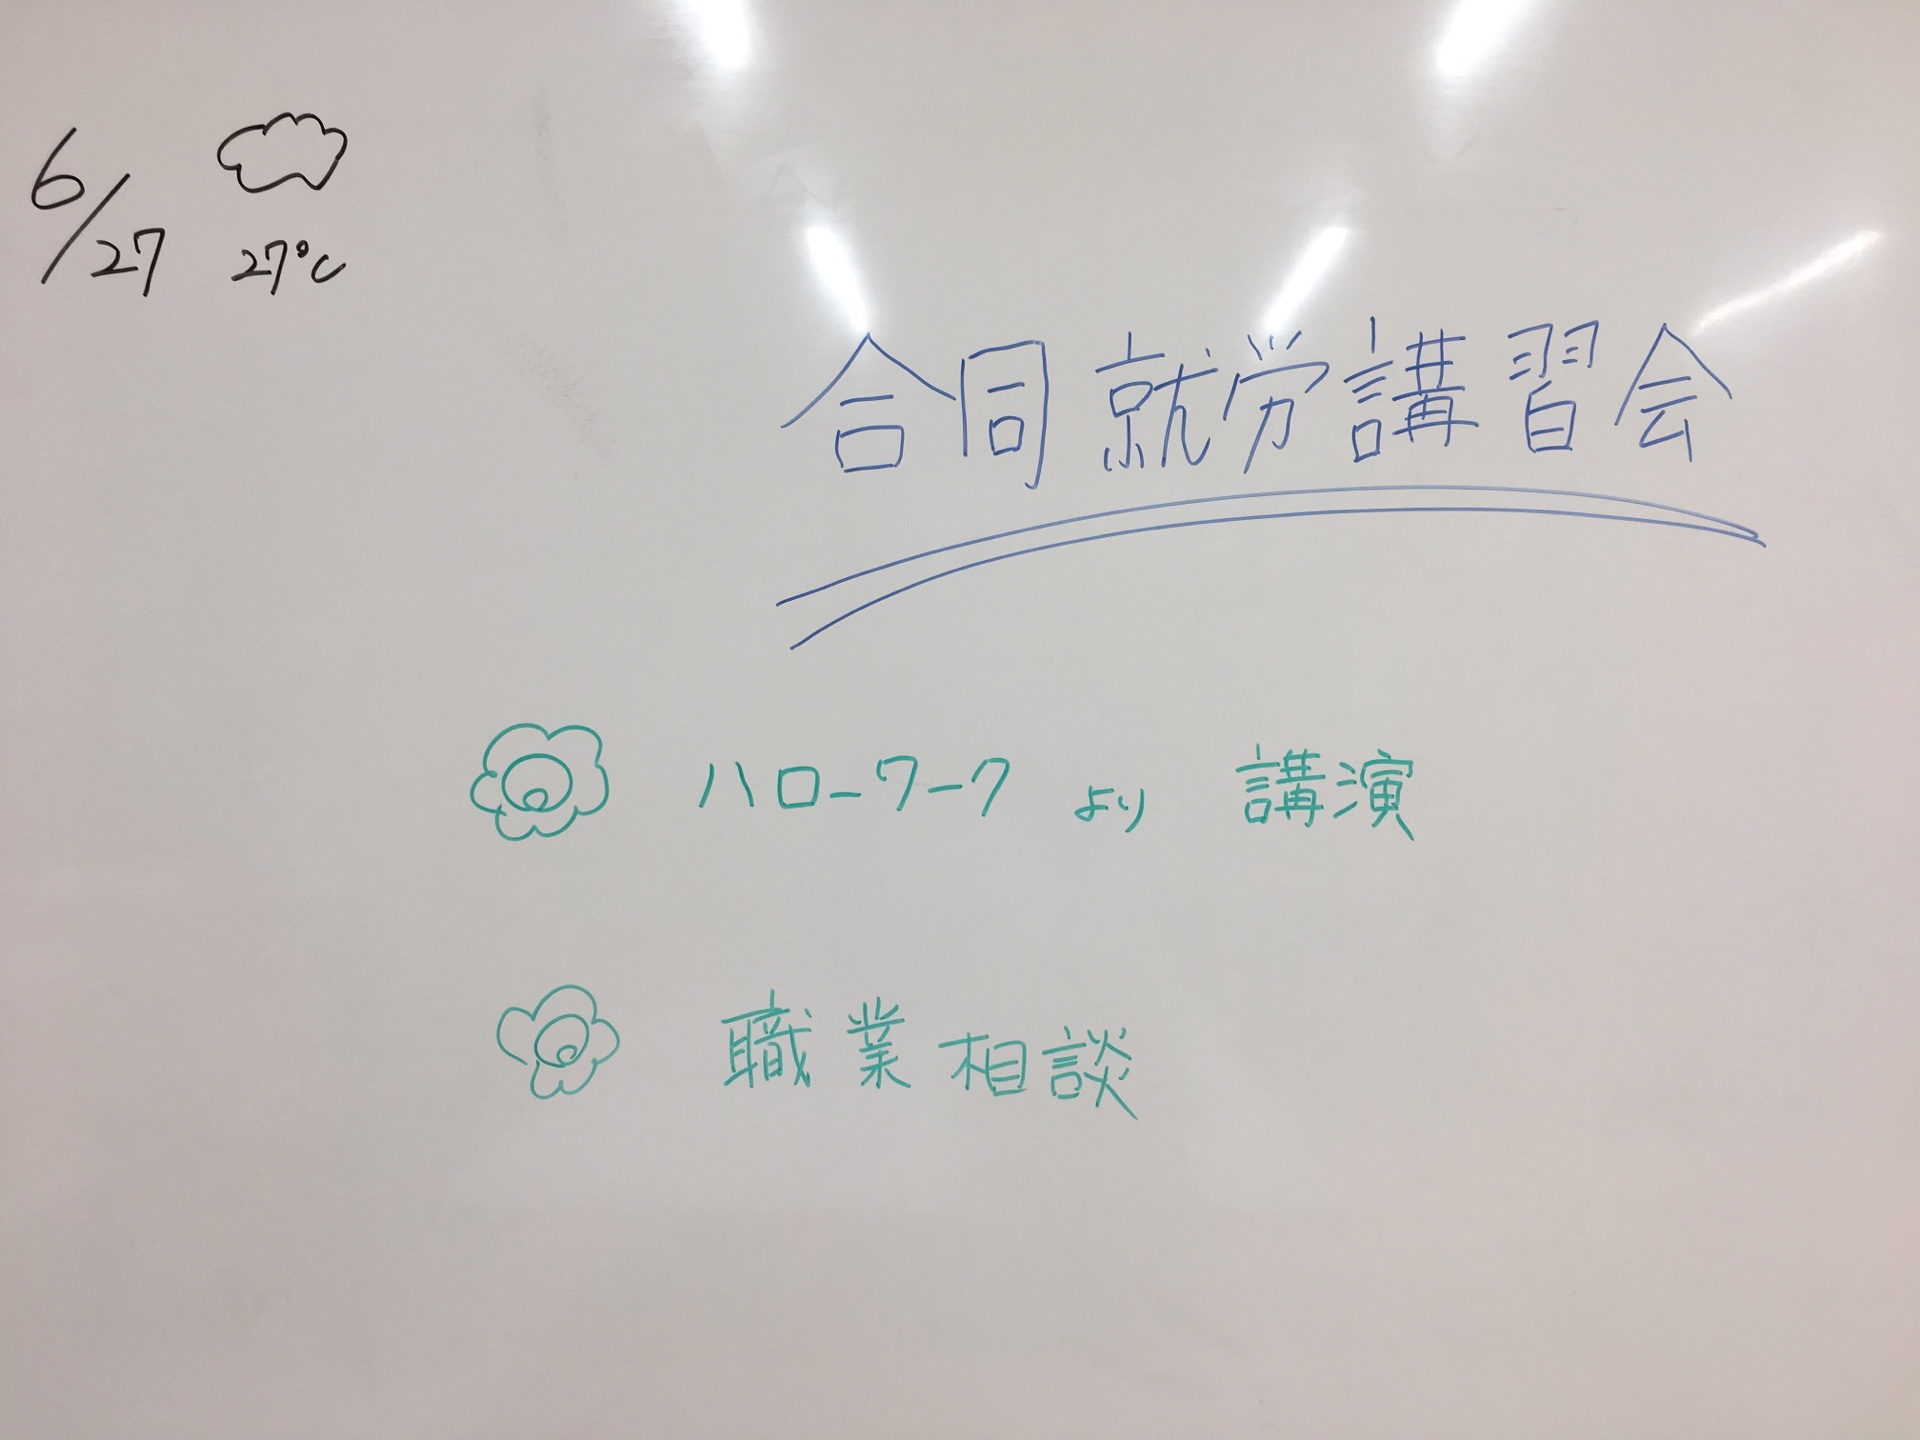 6/27
27℃
合同就労講習会
ハローワークより講演
職業相談